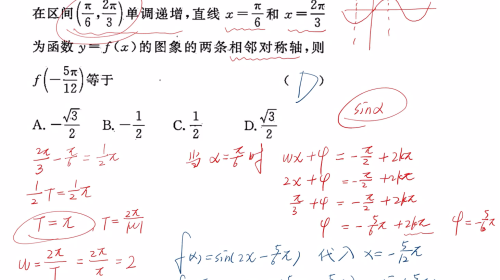 在区间(π/6, 2π/3)单调递增,直线 x=π/6 和 x=2π/3
为函数 y=f(x)的图象的两条相邻对称轴,则
f(-5π/12)等于 ( D )
A. -√3/2 B. -1/2 C. 1/2 D. √3/2
sinα
2π/3 - π/6 = 1/2 π
1/2 T = 1/2 π
T = π , T = 2π/|W|
W = 2π/T = 2π/π = 2
当 x = π/6 时 wx+φ = -π/2 + 2kπ
2x+φ = -π/2 + 2kπ
π/3 + φ = -π/2 + 2kπ
φ = -5/6 π + 2kπ φ = -5/6 π
f(x) = sin(2x - 5/6 π) 代入 x = -5/12 π